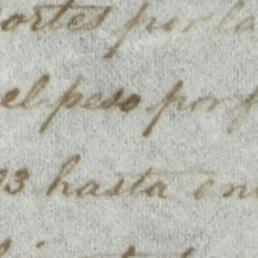 ortes por la
el peso por
93 hasta en